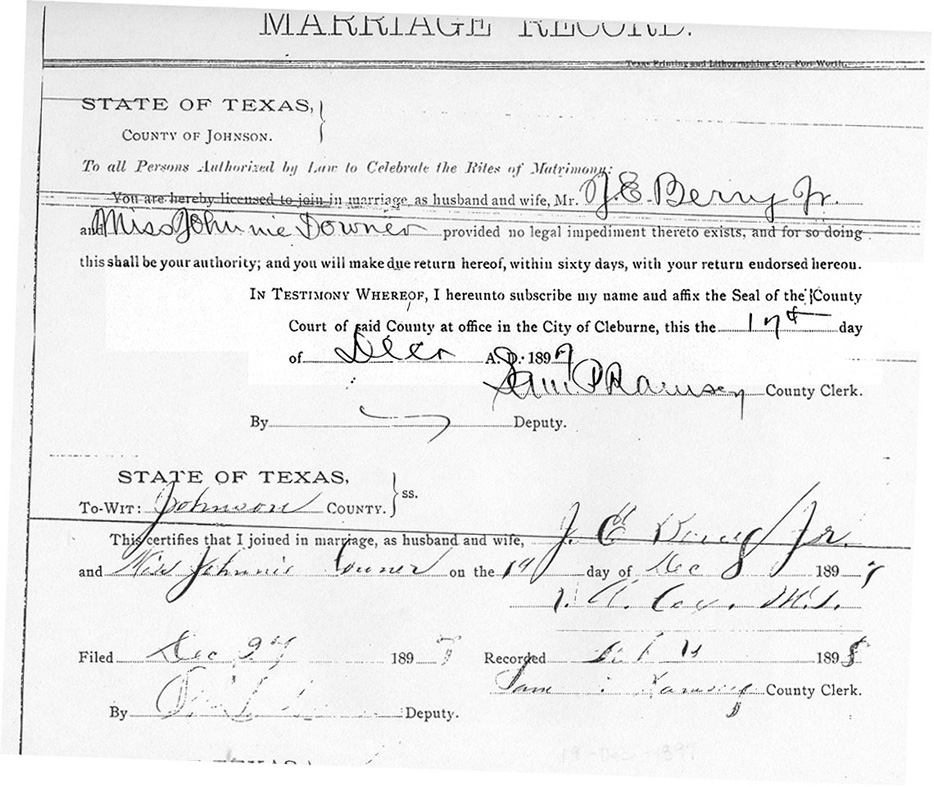 MARRIAGE RECORD.
Texas Printing and Lithographing Co., Fort Worth.
STATE OF TEXAS,
COUNTY OF JOHNSON.
To all Persons Authorized by Law to Celebrate the Rites of Matrimony:
You are hereby licensed to join in marriage, as husband and wife, Mr. J. E. Berry Jr.
and Miss Johnnie Downer provided no legal impediment thereto exists, and for so doing
this shall be your authority; and you will make due return hereof, within sixty days, with your return endorsed hereon.
IN TESTIMONY WHEREOF, I hereunto subscribe my name and affix the Seal of the County
Court of said County at office in the City of Cleburne, this the 17th day
of Decr A. D. 1897
Sam P Ramsey County Clerk.
By Deputy.
STATE OF TEXAS,
TO-WIT: Johnson COUNTY. ss.
This certifies that I joined in marriage, as husband and wife, J. E. Berry Jr.
and Miss Johnnie Downer on the 19 day of Dec 1897
Cox, M.G.
Filed Dec 27 1897 Recorded 1898
Sam Ramsey County Clerk.
By Deputy.
19-Dec-1897